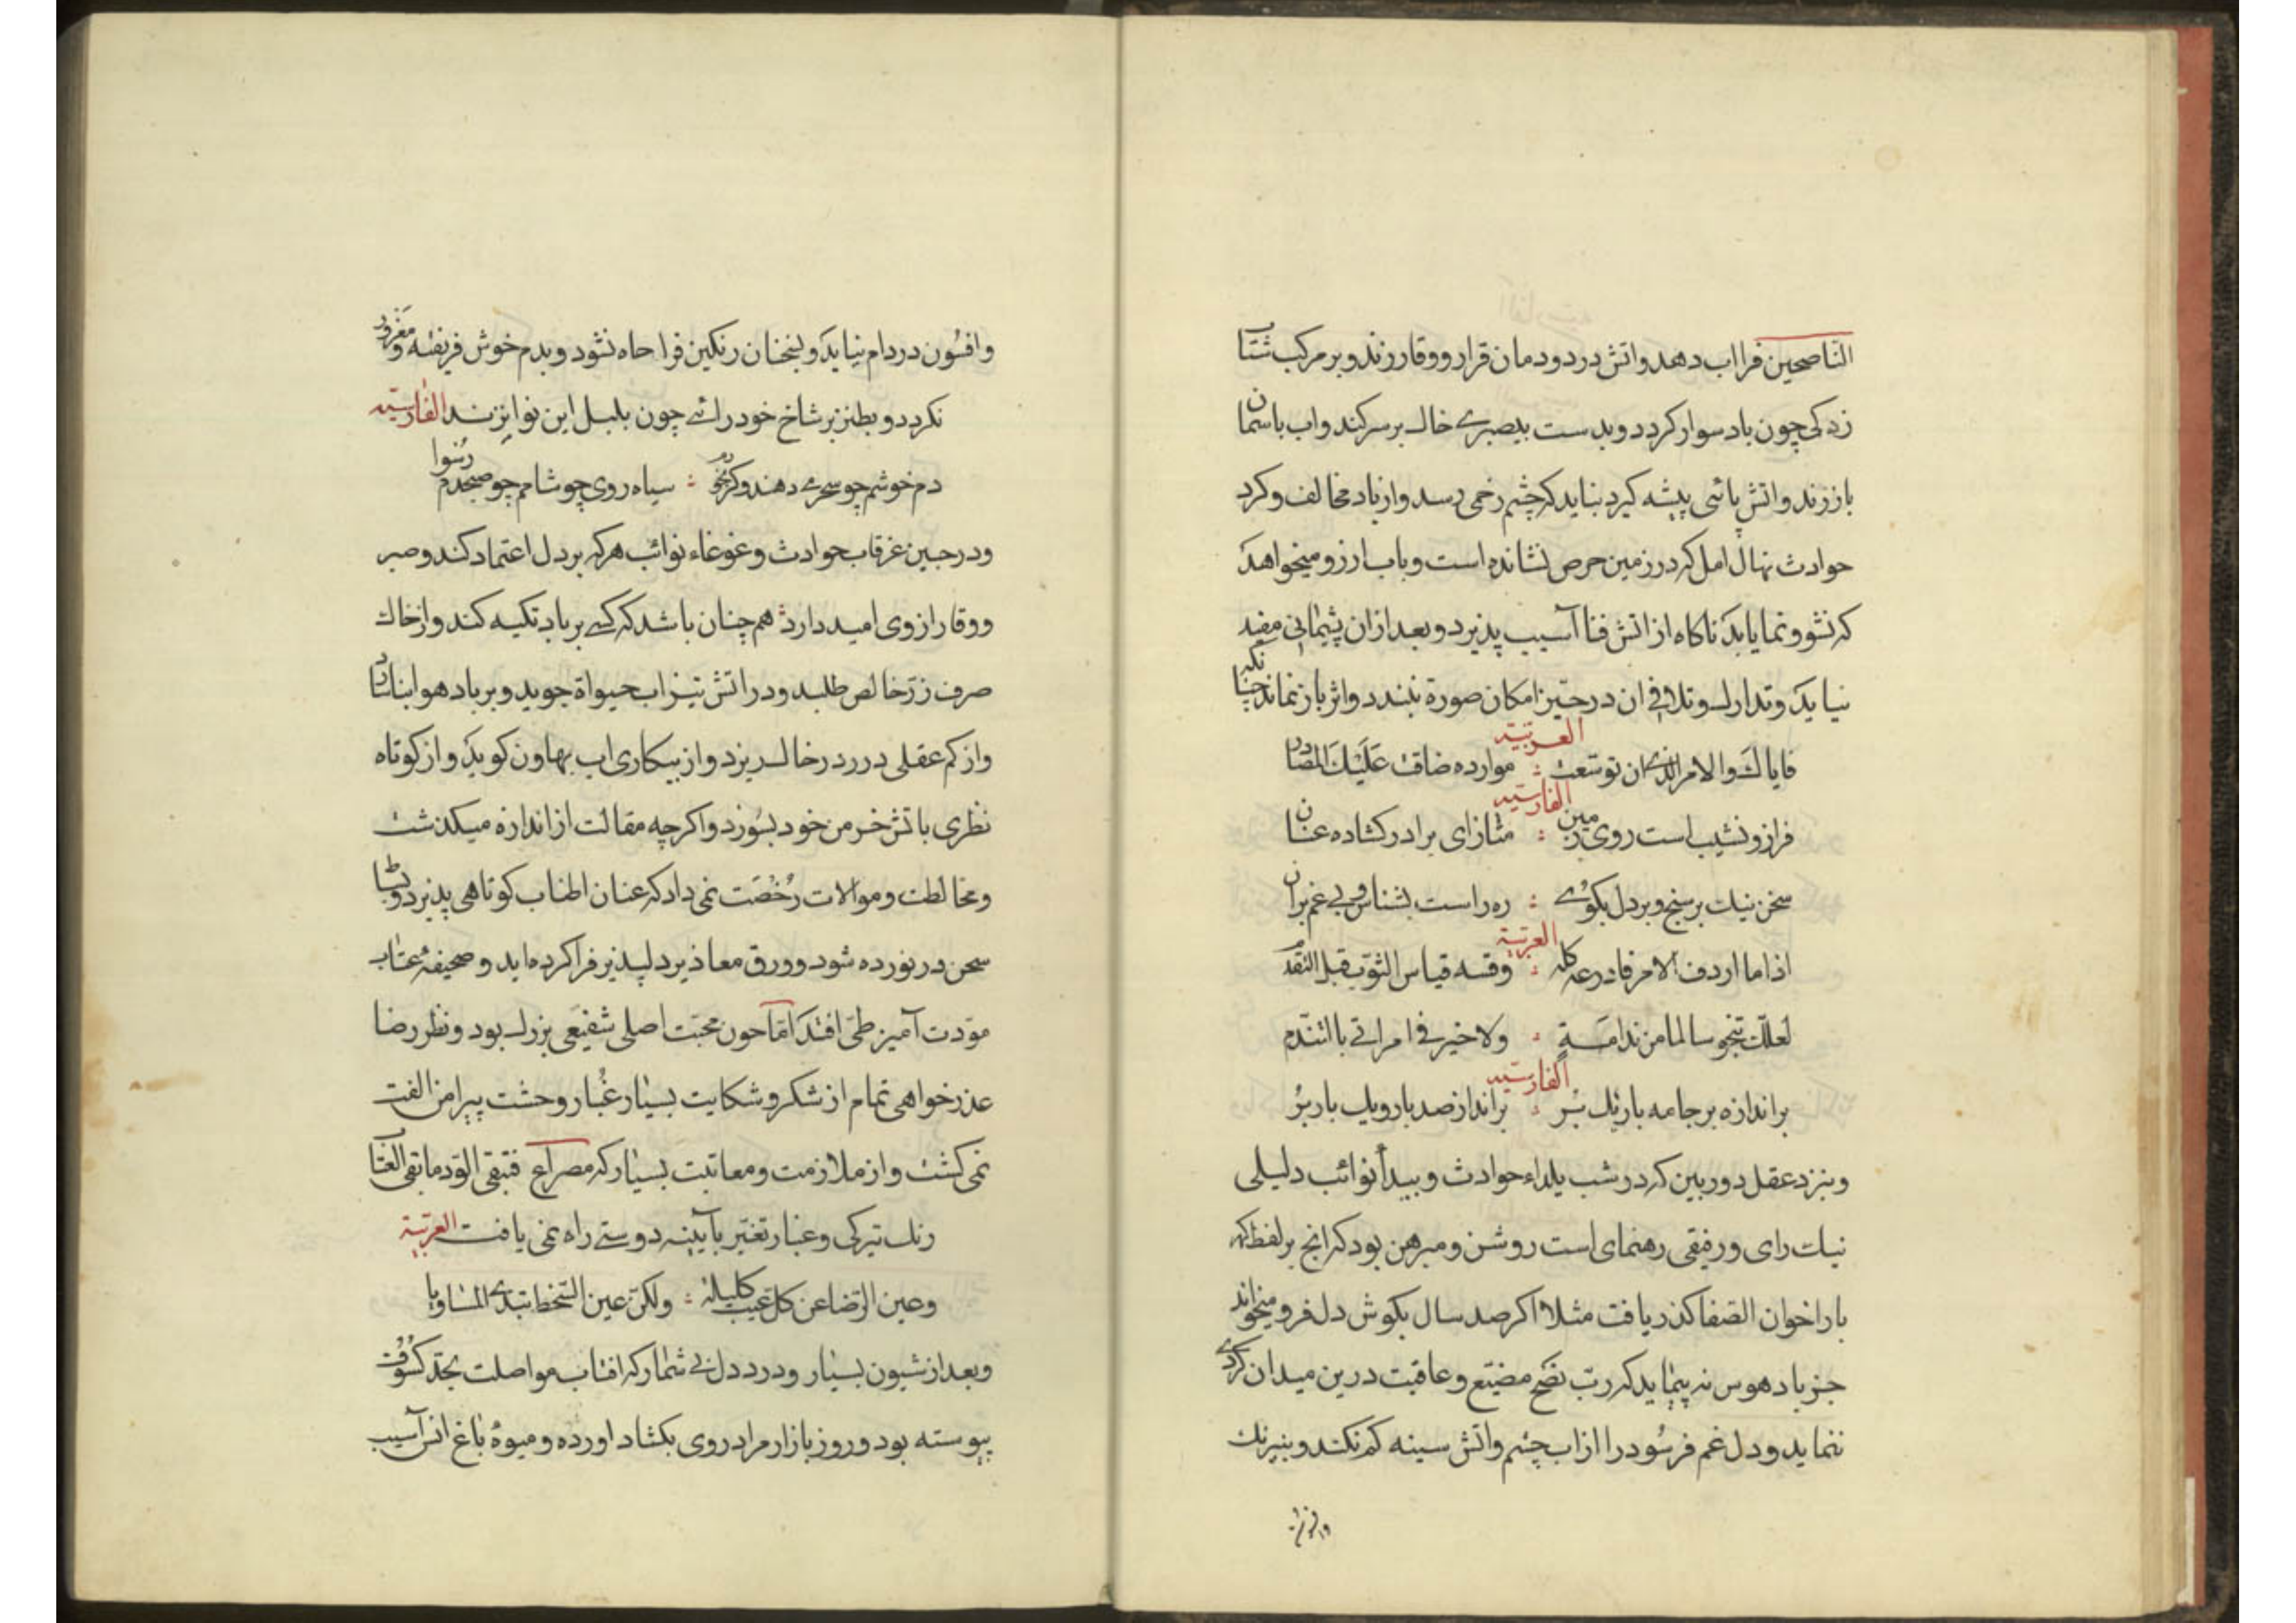 الناصحین فرا اب دهد واتش در دودمان قرار ووقار زند وبر مرکب شتاب
زدکی چون باد سوار کردد وبدست بیصبرے خاک بر سر کند واب باسمان
باز زند واتش پائی پیشه کیرد بناید که چشم زخمی رسد واز باد مخالف وکرد
حوادث نهال امل که در زمین حرص نشانده است وباب ارزو میخواهد
که نشو ونما یابد ناکاه از اتش فنا آسیب پذیرد وبعد از ان پشیمانی مفید
نیاید وتدارک وتلافی ان در حیّز امکان صورة نبندد واثر باز نماند چنانکه
العربیّة
فایاک والامر الذے ان توسّعت : موارده ضاقت علیک المصادر
الفارسیّه
فراز ونشیب است روی زمین : متاز ای برادر کشاده عنان
سخن نیک برسنج وبر دل بکوے : ره راست بشناس وبی غم بران
العربیّة
اذا ما اردت الامر فادرعه کله : وقسه قیاس الثوب قبل التقدّم
لعلک تنجو سالما من ندامةٍ : ولا خیر فے امر اتی بالتندّم
الفارسیّه
بر اندازه بر جامه باریک بُر : بر انداز صد بار ویک بار بُر
وبنزد عقل دوربین که در شب یلداء حوادث وبیدأ نوائب دلیلی
نیک رای ورفیقی رهنمای است روشن ومبرهن بود که انج بر لفظ کهر
بار اخوان الصّفا کذر یافت مثلا اکر صد سال بکوش دل فرو میخواند
جز باد هوس نه پیماید که ربّ نصح مضیّع وعاقبت درین میدان کردے
ننماید ودل غم فرسُود را از اب چشم واتش سینه کم نکند وبنیرنک
وافسُون در دام نیاید وبسخنان رنکین فرا جاه نشود وبدم خوش فریفته ومغرور
نکردد وبطنز بر شاخ خود رائے چون بلبل این نوا بزند الفارسیّه
دم خوشم چو سحر مے دهند ومکر نخرم : سیاه روی چو شامم چو صبحدم رسوا
ودر حین غرقاب حوادث وغوغاء نوائب هرکه بر دل اعتماد کند وصبر
ووقار از وی امید دارد هم چنان باشد که کسے بر باد تکیه کند واز خاک
صرف زر خالص طلبد ودر اتش تیز اب حیواة جوید وبر باد هوا بنا نهاد
واز کم عقلی در در خاک ریزد واز بیکاری اب بهاون کوبد واز کوتاه
نظری باتش خرمن خود بسُوزد واکرچه مقالت از اندازه میکذشت
ومخالطت وموالات رُخصَت نمی داد که عنان اطناب کوتاهی پذیرد وبساط
سخن در نورده شود وورق معاذیر دلپذیر فرا کرده اید وصحیفۀ عتاب
مودّت آمیز طی افتد امّا چون محبّت اصلی شفیعَی بزرک بود ونظر رضا
عذر خواهی تمام از شکر وشکایت بسیار غُبار وحشت پیرامن الفت
نمی کشت واز ملازمت ومعاتبت بسیار که مصراع فتبقی الودّ ما بقی العتاب
زنک تیرکی وغبار تغیّر بآیینه دوستے راه نمی یافت العربیّة
وعین الرّضا عن کل عیب کلیلة : ولکنّ عین السّخط تبدے المساویا
وبعد از شیون بسیار ودرد دل بی شمار که افتاب مواصلت بحدّ کسوُف
پیوسته بود وروز بازار مراد روی بکشاد اورده ومیوۀ باغ انس آسیب